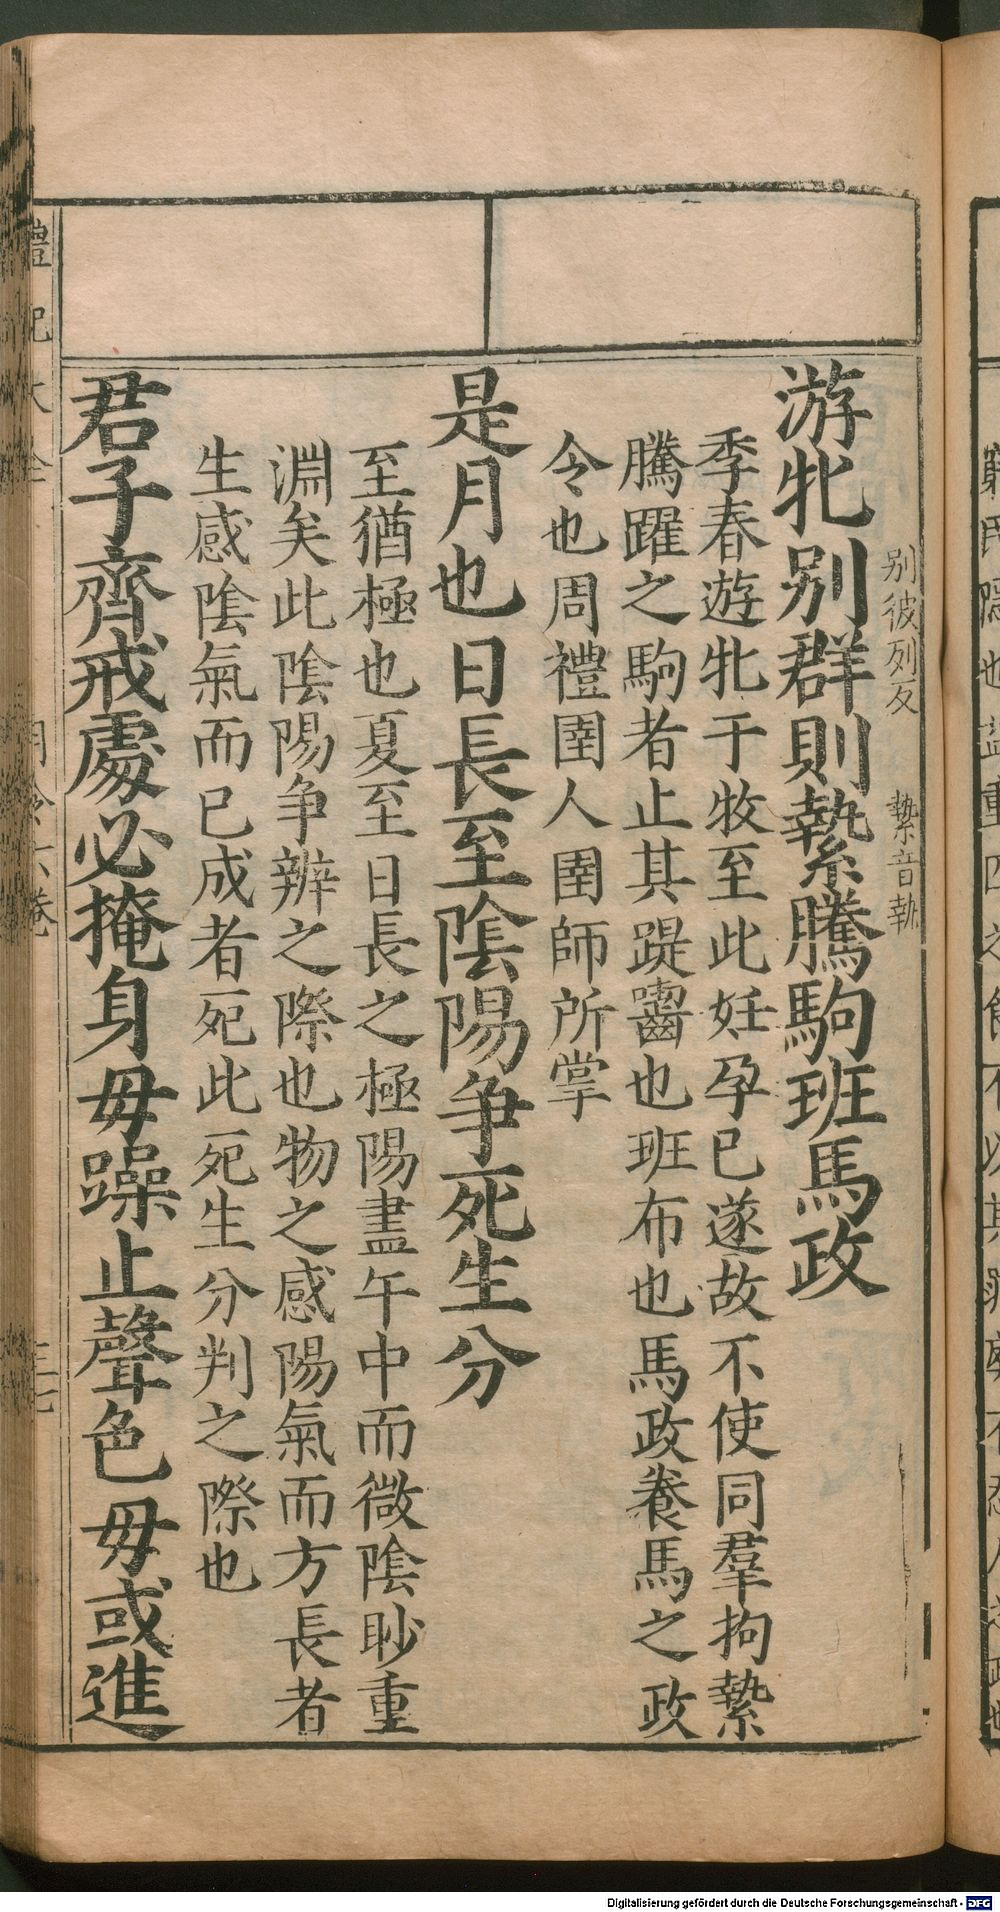 别彼列反 縶音執
游牝别群則縶騰駒班馬政
季春遊牝于牧至此妊孕已遂故不使同羣拘縶
騰躍之駒者止其踶嚙也班布也馬政養馬之政
令也周禮圉人圉師所掌
是月也日長至陰陽争死生分
至猶極也夏至日長之極陽盡午中而微陰眇重
淵矣此陰陽争辨之際也物之感陽氣而方長者
生感陰氣而已成者死此死生分判之際也
君子齊戒處必掩身毋躁止聲色毋或進
禮記大全 月令六卷
Digitalisierung gefördert durch die Deutsche Forschungsgemeinschaft - DFG